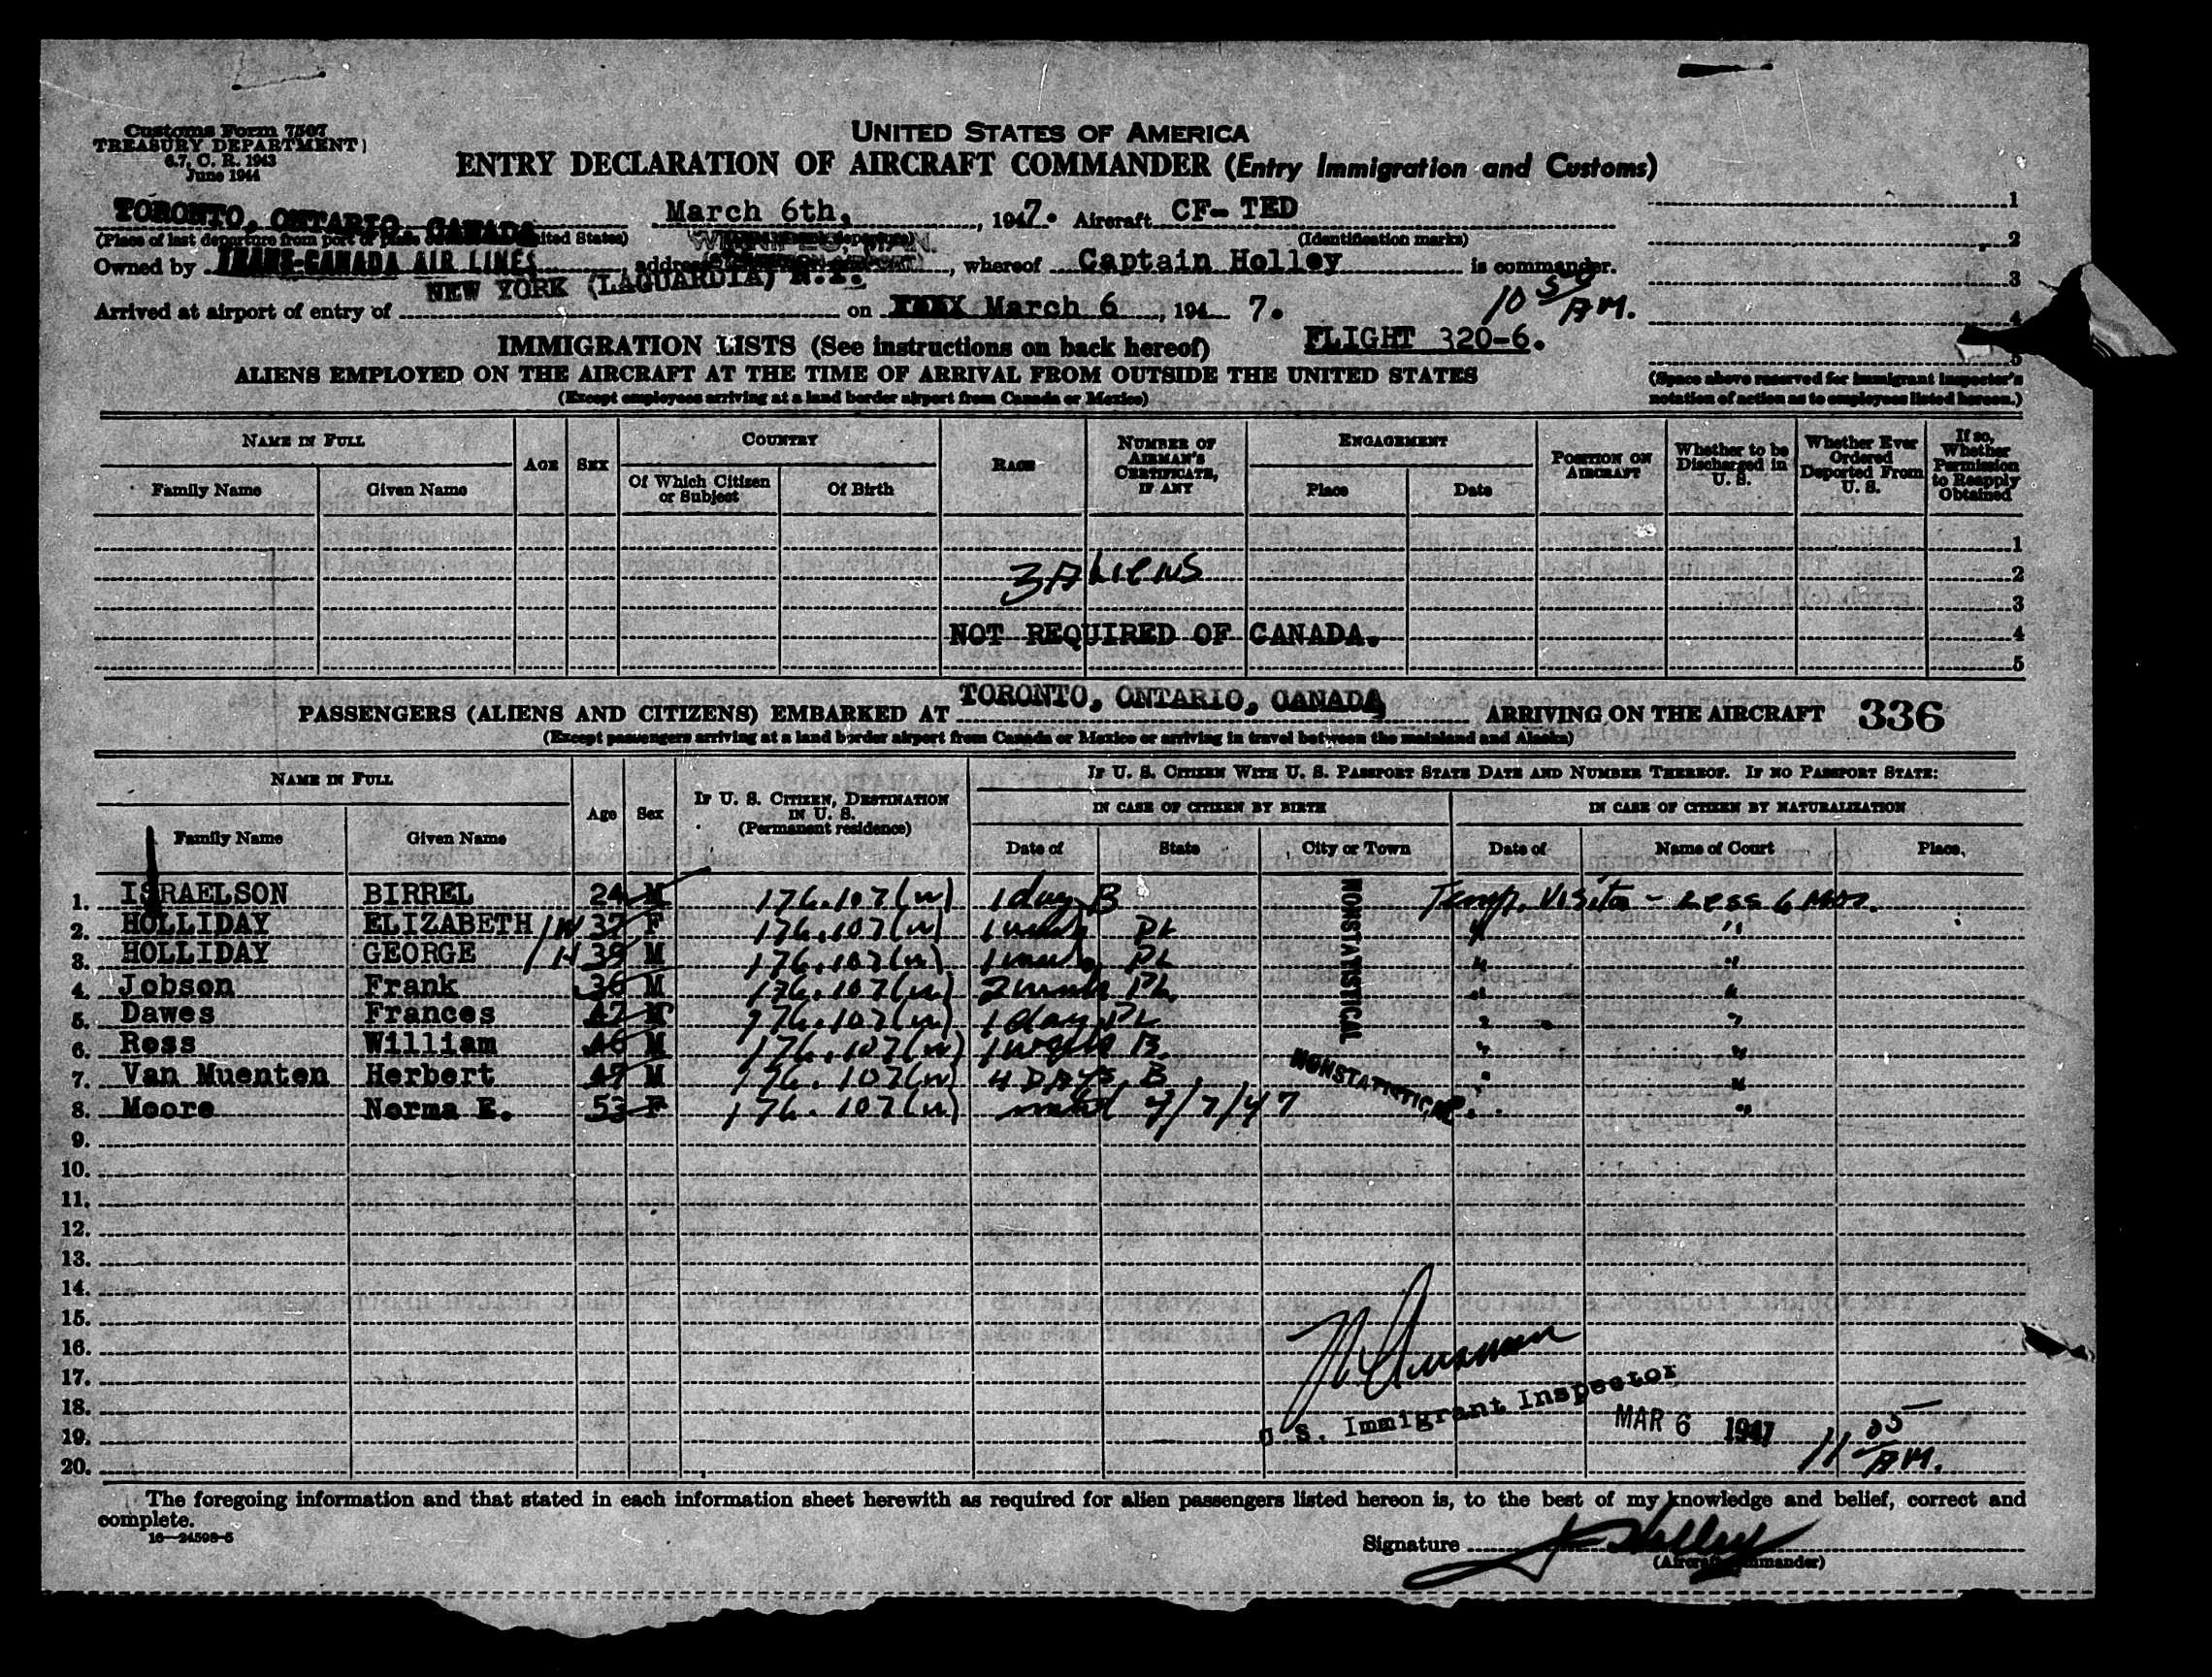 Customs Form 7507
TREASURY DEPARTMENT
6.7, C. R. 1943
June 1944
UNITED STATES OF AMERICA
ENTRY DECLARATION OF AIRCRAFT COMMANDER (Entry Immigration and Customs)
TORONTO, ONTARIO, CANADA March 6th, , 1947. Aircraft CF- TED
(Place of last departure from port or place United States) (Identification marks)
WINNIPEG, MAN.
Owned by TRANS-CANADA AIR LINES address , whereof Captain Holley is commander.
NEW YORK (LAGUARDIA) N.Y.
Arrived at airport of entry of on XXXX March 6 , 194 7. 10 50 AM.
IMMIGRATION LISTS (See instructions on back hereof) FLIGHT 320-6.
ALIENS EMPLOYED ON THE AIRCRAFT AT THE TIME OF ARRIVAL FROM OUTSIDE THE UNITED STATES
(Except employees arriving at a land border airport from Canada or Mexico)
1
2
3
4
5
(Space above reserved for immigrant inspector's
notation of action as to employees listed hereon.)
NAME IN FULL
Family Name Given Name
AGE SEX
COUNTRY
Of Which Citizen or Subject Of Birth
RACE
NUMBER OF AIRMAN'S CERTIFICATE, IF ANY
ENGAGEMENT
Place Date
POSITION ON AIRCRAFT
Whether to be Discharged in U. S.
Whether Ever Ordered Deported From U. S.
If so, Whether Permission to Reapply Obtained
1
3 ALIENS 2
3
NOT REQUIRED OF CANADA. 4
5
PASSENGERS (ALIENS AND CITIZENS) EMBARKED AT TORONTO, ONTARIO, CANADA ARRIVING ON THE AIRCRAFT 336
(Except passengers arriving at a land border airport from Canada or Mexico or arriving in travel between the mainland and Alaska)
NAME IN FULL
Family Name Given Name
Age Sex
IF U. S. CITIZEN, DESTINATION IN U. S.
(Permanent residence)
IF U. S. CITIZEN WITH U. S. PASSPORT STATE DATE AND NUMBER THEREOF. IF NO PASSPORT STATE:
IN CASE OF CITIZEN BY BIRTH IN CASE OF CITIZEN BY NATURALIZATION
Date of State City or Town Date of Name of Court Place.
1. ISRAELSON BIRREL 24 M 176.107(w) 1 day B Temp. Visitor - Less 6 Mos.
2. HOLLIDAY ELIZABETH /W 37 F 176.107(w) 1 PL " "
3. HOLLIDAY GEORGE /H 39 M 176.107(w) 1 PL " "
4. Jobson Frank 36 M 176.107(w) 2 PL. " "
5. Dawes Frances 47 M 176.107(w) 1 day PL " "
6. Ross William 46 M 176.107(w) 1 week B. " "
7. Van Muenten Herbert 47 M 176.107(w) 4 DAYS B " "
8. Moore Norma E. 53 F 176.107(w) /7/47 " "
NONSTATISTICAL
NONSTATISTICAL
9.
10.
11.
12.
13.
14.
15.
16.
17.
18.
19.
20.
U.S. Immigrant Inspector
MAR 6 1947 11 05 AM.
The foregoing information and that stated in each information sheet herewith as required for alien passengers listed hereon is, to the best of my knowledge and belief, correct and
complete.
16—24598-5
Signature Holley
(Aircraft Commander)